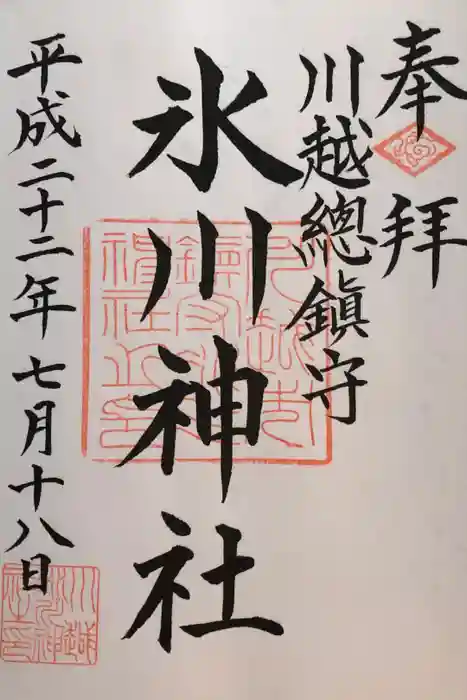 奉拝
川越總鎮守
氷川神社
平成二十二年七月十八日